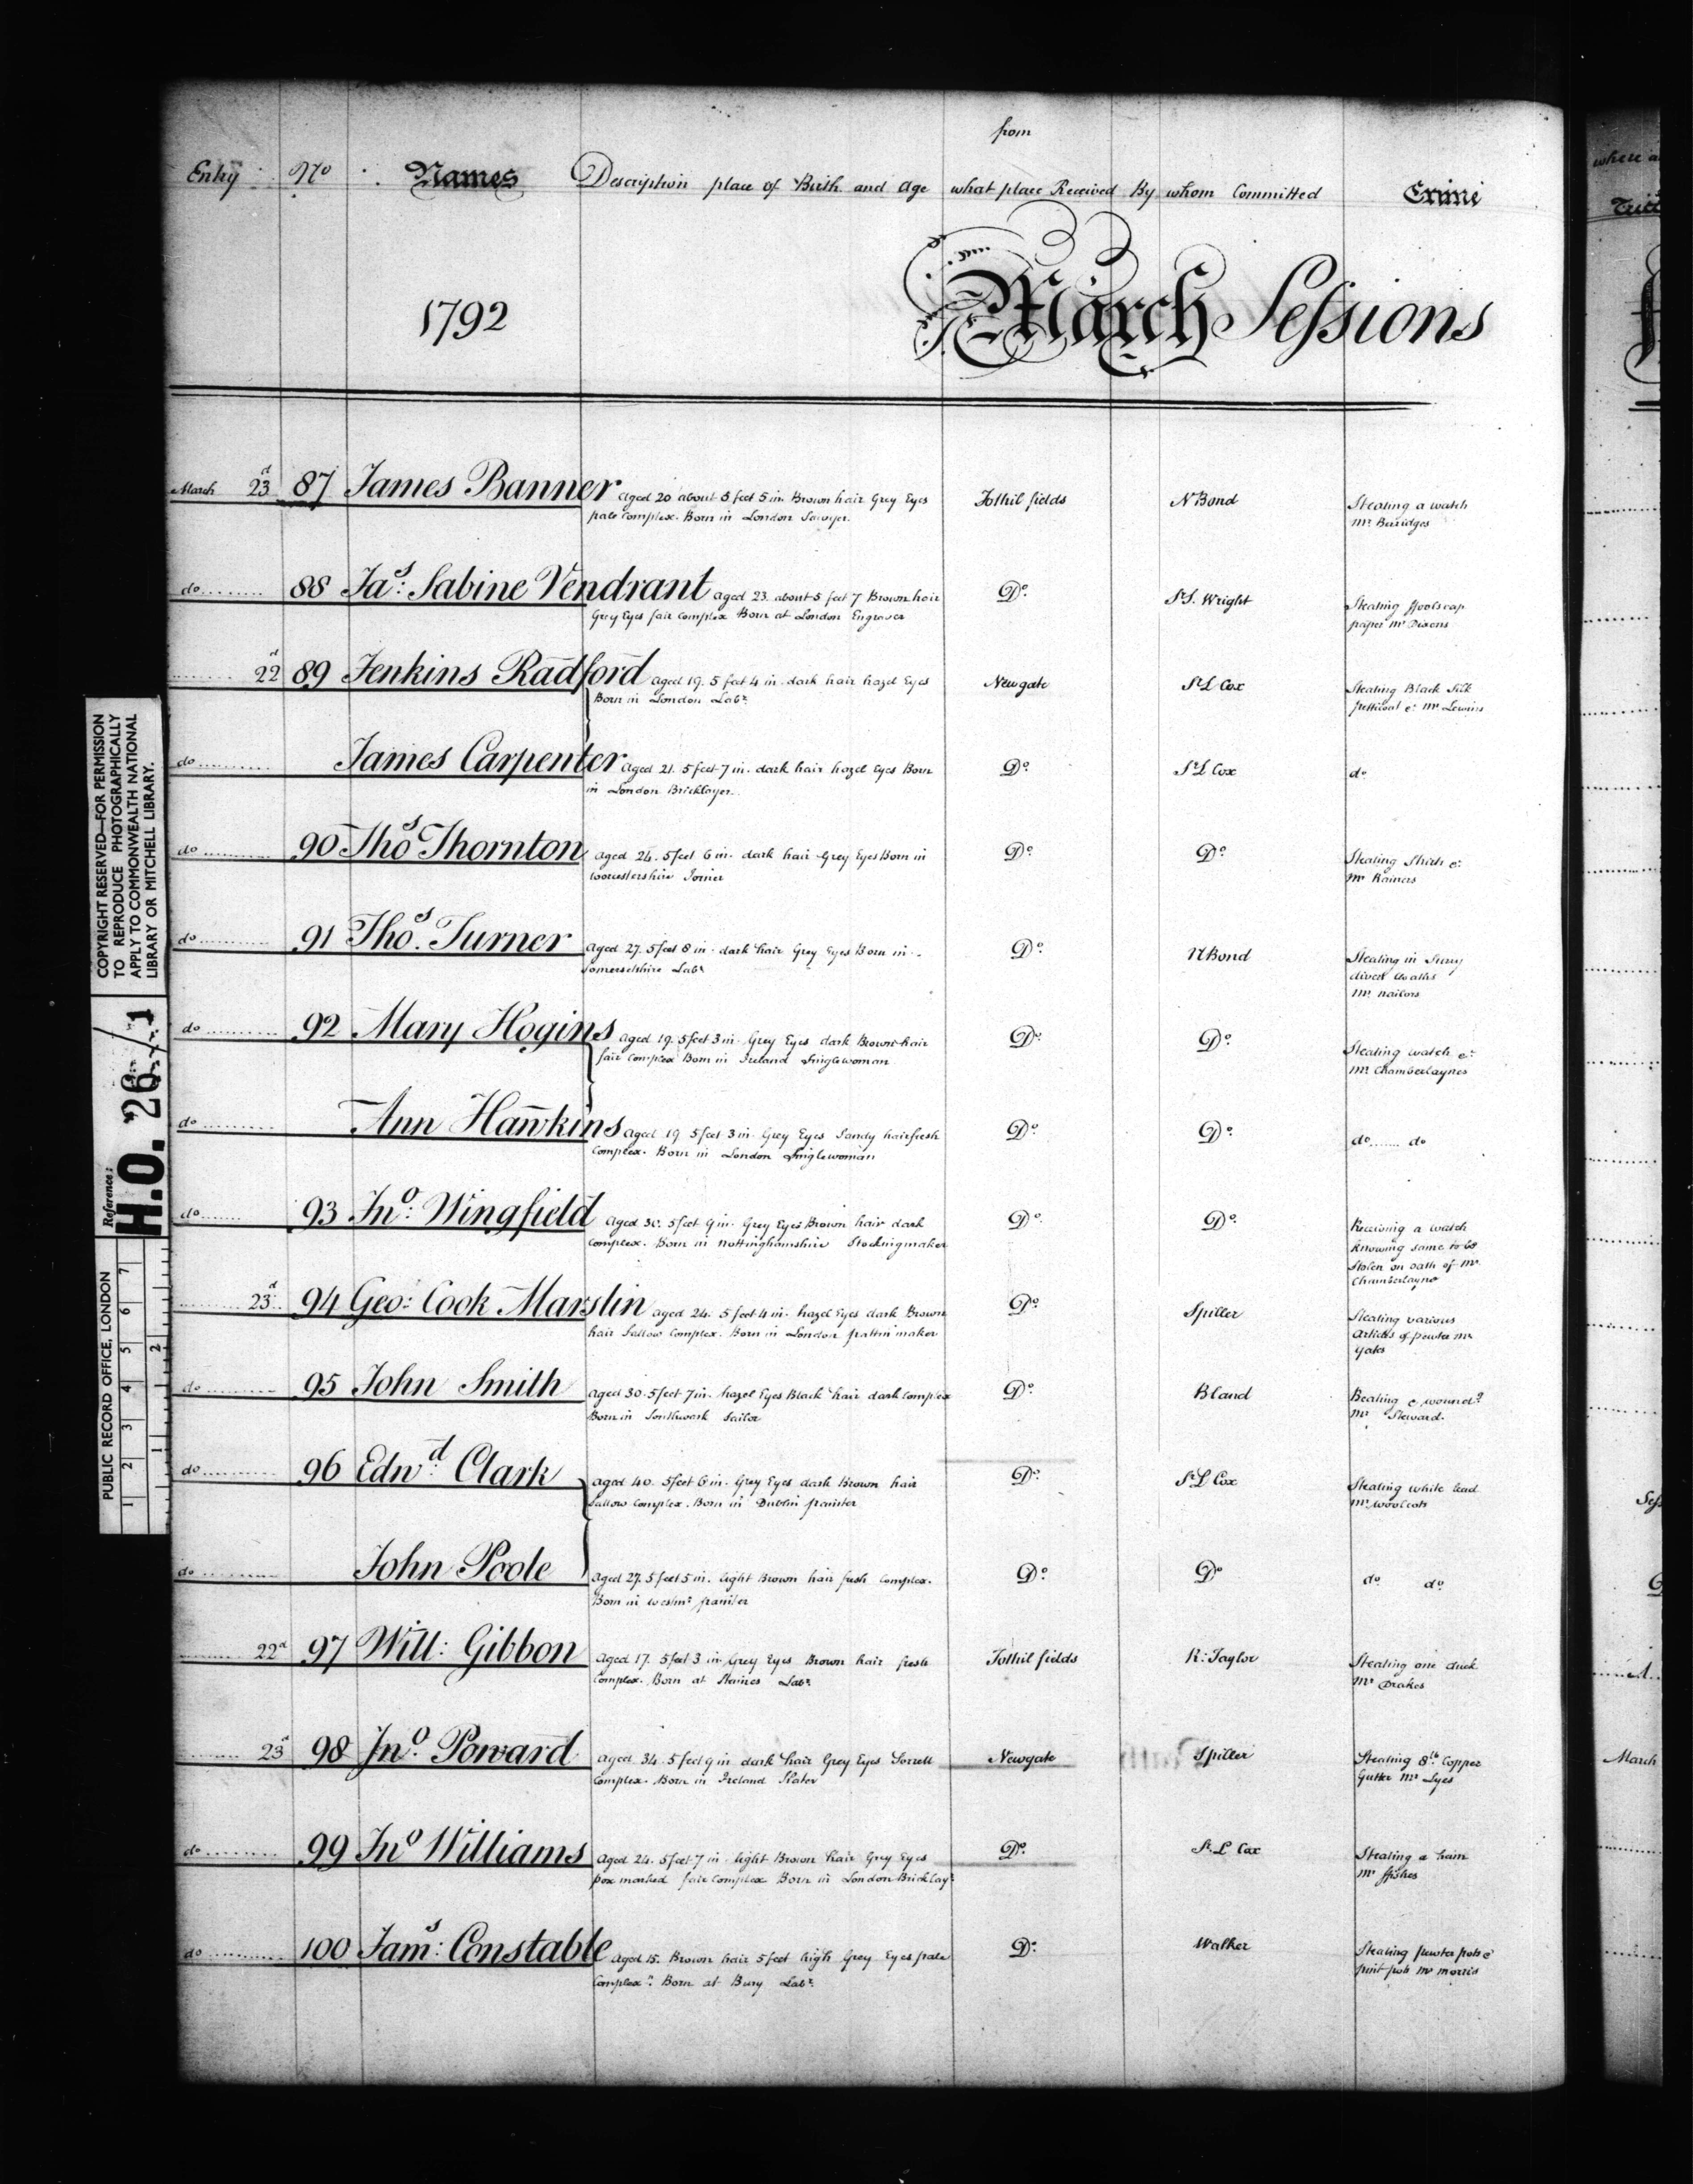 from
Entry No Names Description place of Birth and Age what place Received By whom Committed Crime
where a
1792 March Sessions
March 23d 87 James Banner Aged 20 about 5 feet 5 in Brown hair Grey Eyes Tothil fields N Bond Stealing a watch
pale Complex. Born in London Sawyer. Mr Burridges
do 88 Jas: Sabine Vendrant aged 23. about 5 feet 7 Brown hair Do. Sr S. Wright Stealing ffoolscap
Grey Eyes fair Complex Born at London Engraver paper Mr Dixons
22d 89 Jenkins Radford aged 19. 5 feet 4 in. dark hair hazel Eyes Newgate Sr L Cox Stealing Black Silk
Born in London Labr. pettieoat &c Mr Lewins
do James Carpenter Aged 21. 5 feet 7 in. dark hair hazel Eyes Born Do. Sr L Cox do
in London Bricklayer.
do 90 Thos Thornton Aged 24. 5 feet 6 in. dark hair Grey Eyes Born in Do. Do. Stealing Shirts &c
Worcestershire Joiner Mr Rainers
do 91 Thos. Turner Aged 27. 5 feet 8 in. dark hair Grey Eyes Born in Do. N Bond Stealing in Surry
Somersetshire Labr divers Cloaths
Mr nailors
do 92 Mary Hogins Aged 19. 5 feet 3 in. Grey Eyes dark Brown hair Do. Do. Stealing watch &c
fair Complex Born in Ireland Singlewoman Mr Chamberlaynes
do Ann Hawkins Aged 19 5 feet 3 in. Grey Eyes Sandy hair fresh Do. Do. do do
Complex. Born in London Singlewoman
do 93 Jno: Wingfield Aged 30. 5 feet 9 in. Grey Eyes Brown hair dark Do. Do. Receiving a watch
Complex. Born in Nottinghamshire Stockingmaker knowing same to be
Stolen on oath of Mr
Chamberlayne
23d 94 Geo: Cook Marslin aged 24. 5 feet 4 in. hazel Eyes dark Brown Do. Spiller Stealing various
hair Sallow Complex. Born in London pattin maker Articles of pewter Mr
Yates
do 95 John Smith Aged 30. 5 feet 7 in. hazel Eyes Black hair dark Complex Do. Bland Beating & woundg
Born in Southwark Sailor Mr Steward.
do 96 Edwd: Clark Aged 40. 5 feet 6 in. Grey Eyes dark Brown hair Do. Sr L Cox Stealing white lead
Sallow Complex. Born in Dublin painter Mr Woolcots
do John Poole Aged 27. 5 feet 5 in. light Brown hair fresh Complex. Do. Do do do
Born in Westmr painter
22d 97 Will: Gibbon Aged 17. 5 feet 3 in. Grey Eyes Brown hair fresh Tothil fields R: Taylor Stealing one duck
Complex. Born at Staines Labr. Mr Drakes
23d 98 Jno. Poward Aged 34. 5 feet 9 in dark hair Grey Eyes Sorrell Newgate Spiller Stealing 8lb Copper
Complex. Born in Ireland Slater Gutter Mr Lyes
March
do 99 Jno Williams Aged 24. 5 feet 7 in. light Brown hair Grey Eyes Do. Sr L Cox Stealing a ham
pox marked fair Complex Born in London Bricklayr Mr ffishes
do 100 Jams: Constable Aged 15. Brown hair 5 feet high Grey Eyes pale Do. Walker Stealing pewter pots &
Complexn: Born at Bury Labr. pint pots Mr Morris
COPYRIGHT RESERVED—FOR PERMISSION
TO REPRODUCE PHOTOGRAPHICALLY
APPLY TO COMMONWEALTH NATIONAL
LIBRARY OR MITCHELL LIBRARY.
Reference:
H.O. 26/1
PUBLIC RECORD OFFICE, LONDON
1 2 3 4 5 6 7
1 2